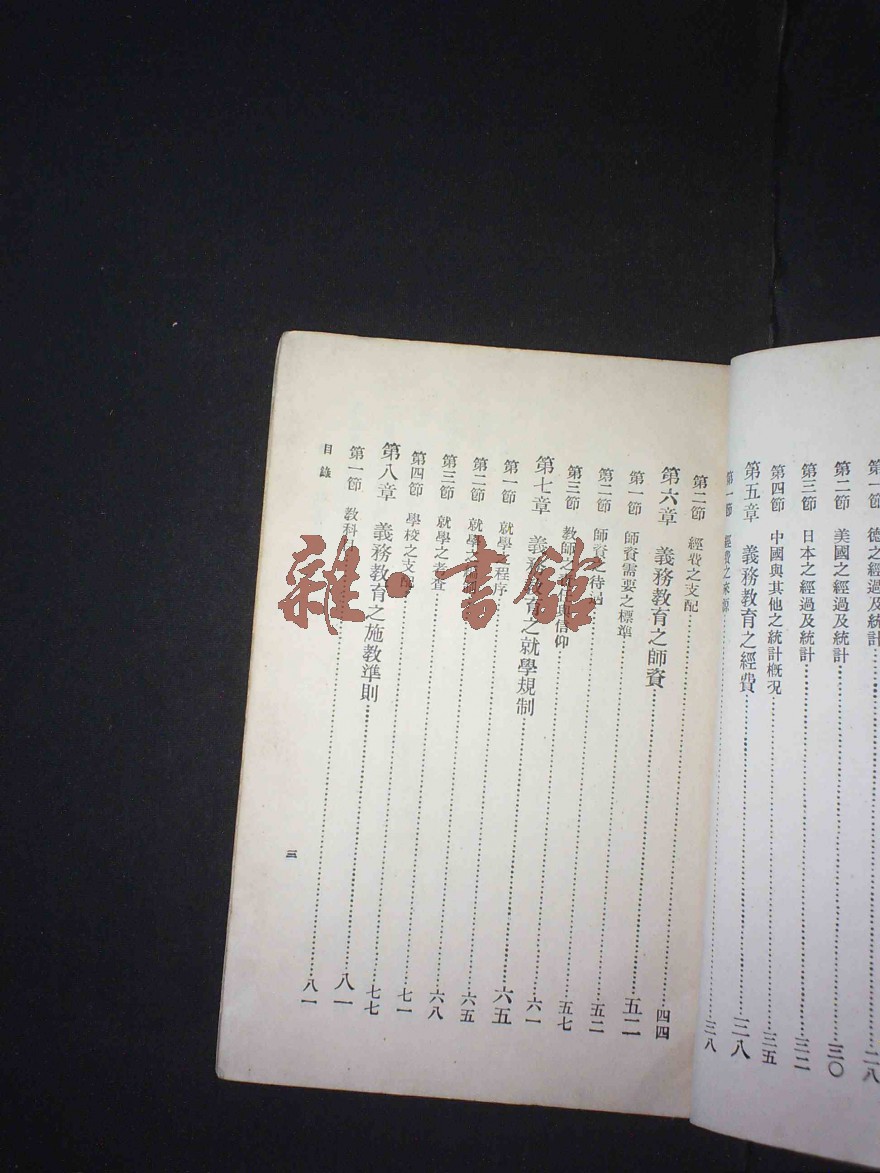 第一節 德之經過及統計……二八
第二節 美國之經過及統計……三〇
第三節 日本之經過及統計……三二
第四節 中國與其他之統計概況……三五
第五章 義務教育之經費……三八
第一節 經費之來源……三八
第二節 經費之支配……四四
第六章 義務教育之師資……五二
第一節 師資需要之標準……五二
第二節 師資之待遇……五七
第三節 教師之信仰……六一
第七章 義務教育之就學規制……六五
第一節 就學之程序……六五
第二節 就學之……六八
第三節 就學之考查……七一
第四節 學校之支配……七七
第八章 義務教育之施教準則……八一
第一節 教科……八一
目錄
三
雜·書館